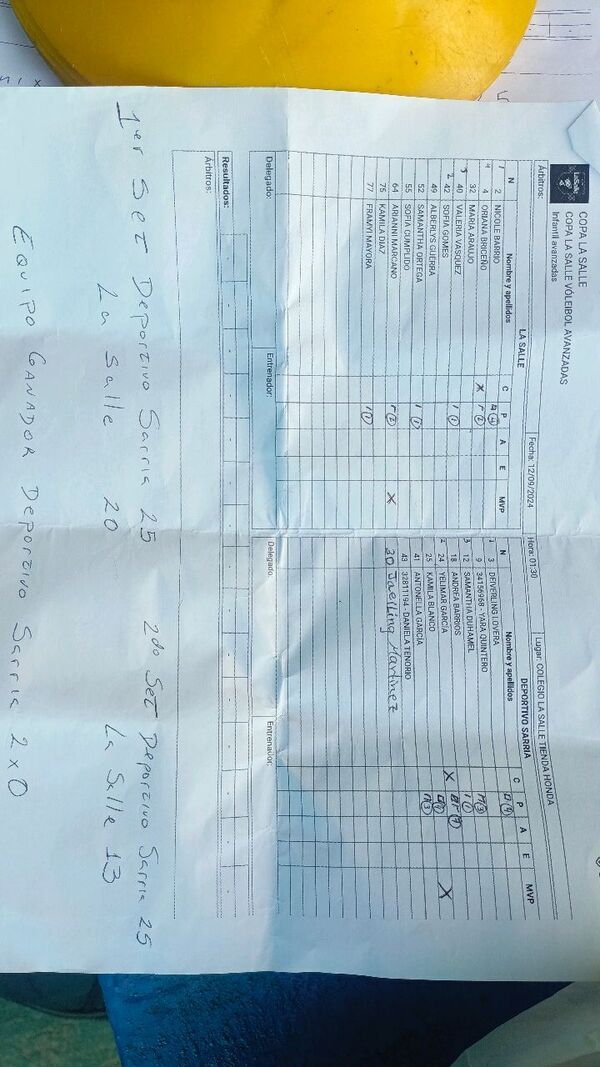 LaSalle
COPA LA SALLE
COPA LA SALLE VÓLEIBOL AVANZADAS
Infantil avanzadas
Árbitros: Fecha: 12/09/2024 Hora: 01:30 Lugar: COLEGIO LA SALLE TIENDA HONDA
LA SALLE
N Nombre y apellidos C P A E MVP
1 2 NICOLE BARRIO 4
4 4 ORIANA BRICEÑO X 2
32 MARIA ARAUJO
3 40 VALERIA VASQUEZ
2 42 SOFIA GOMES 1 1
49 ALBERLYS GUERRA
52 SAMANTHA ORTEGA
55 SOFIA CUMPLIDO 1 1
64 ARIANNI MARCANO 2 X
75 KAMILA DIAZ
77 FRAMYI MAYORA 1 1
Delegado: Entrenador:
DEPORTIVO SARRIA
N Nombre y apellidos C P A E MVP
1 3 DEIVERLING LOVERA 4
9 34156968 - YARA QUINTERO 3
3 12 SAMANTHA DUHAMEL 1 1
18 ANDREA BARRIOS 7
2 24 YELIMAR GARCÍA X X
25 KAMILA BLANCO 3
41 ANTONELLA GARCÍA
43 32811194 - DANIELA TENORIO
30 Jaelling Martinez
Delegado: Entrenador:
Resultados:
Árbitros:
1er Set Deportivo Sarria 25
La Salle 20
2do Set Deportivo Sarria 25
La Salle 13
Equipo Ganador Deportivo Sarria 2x0